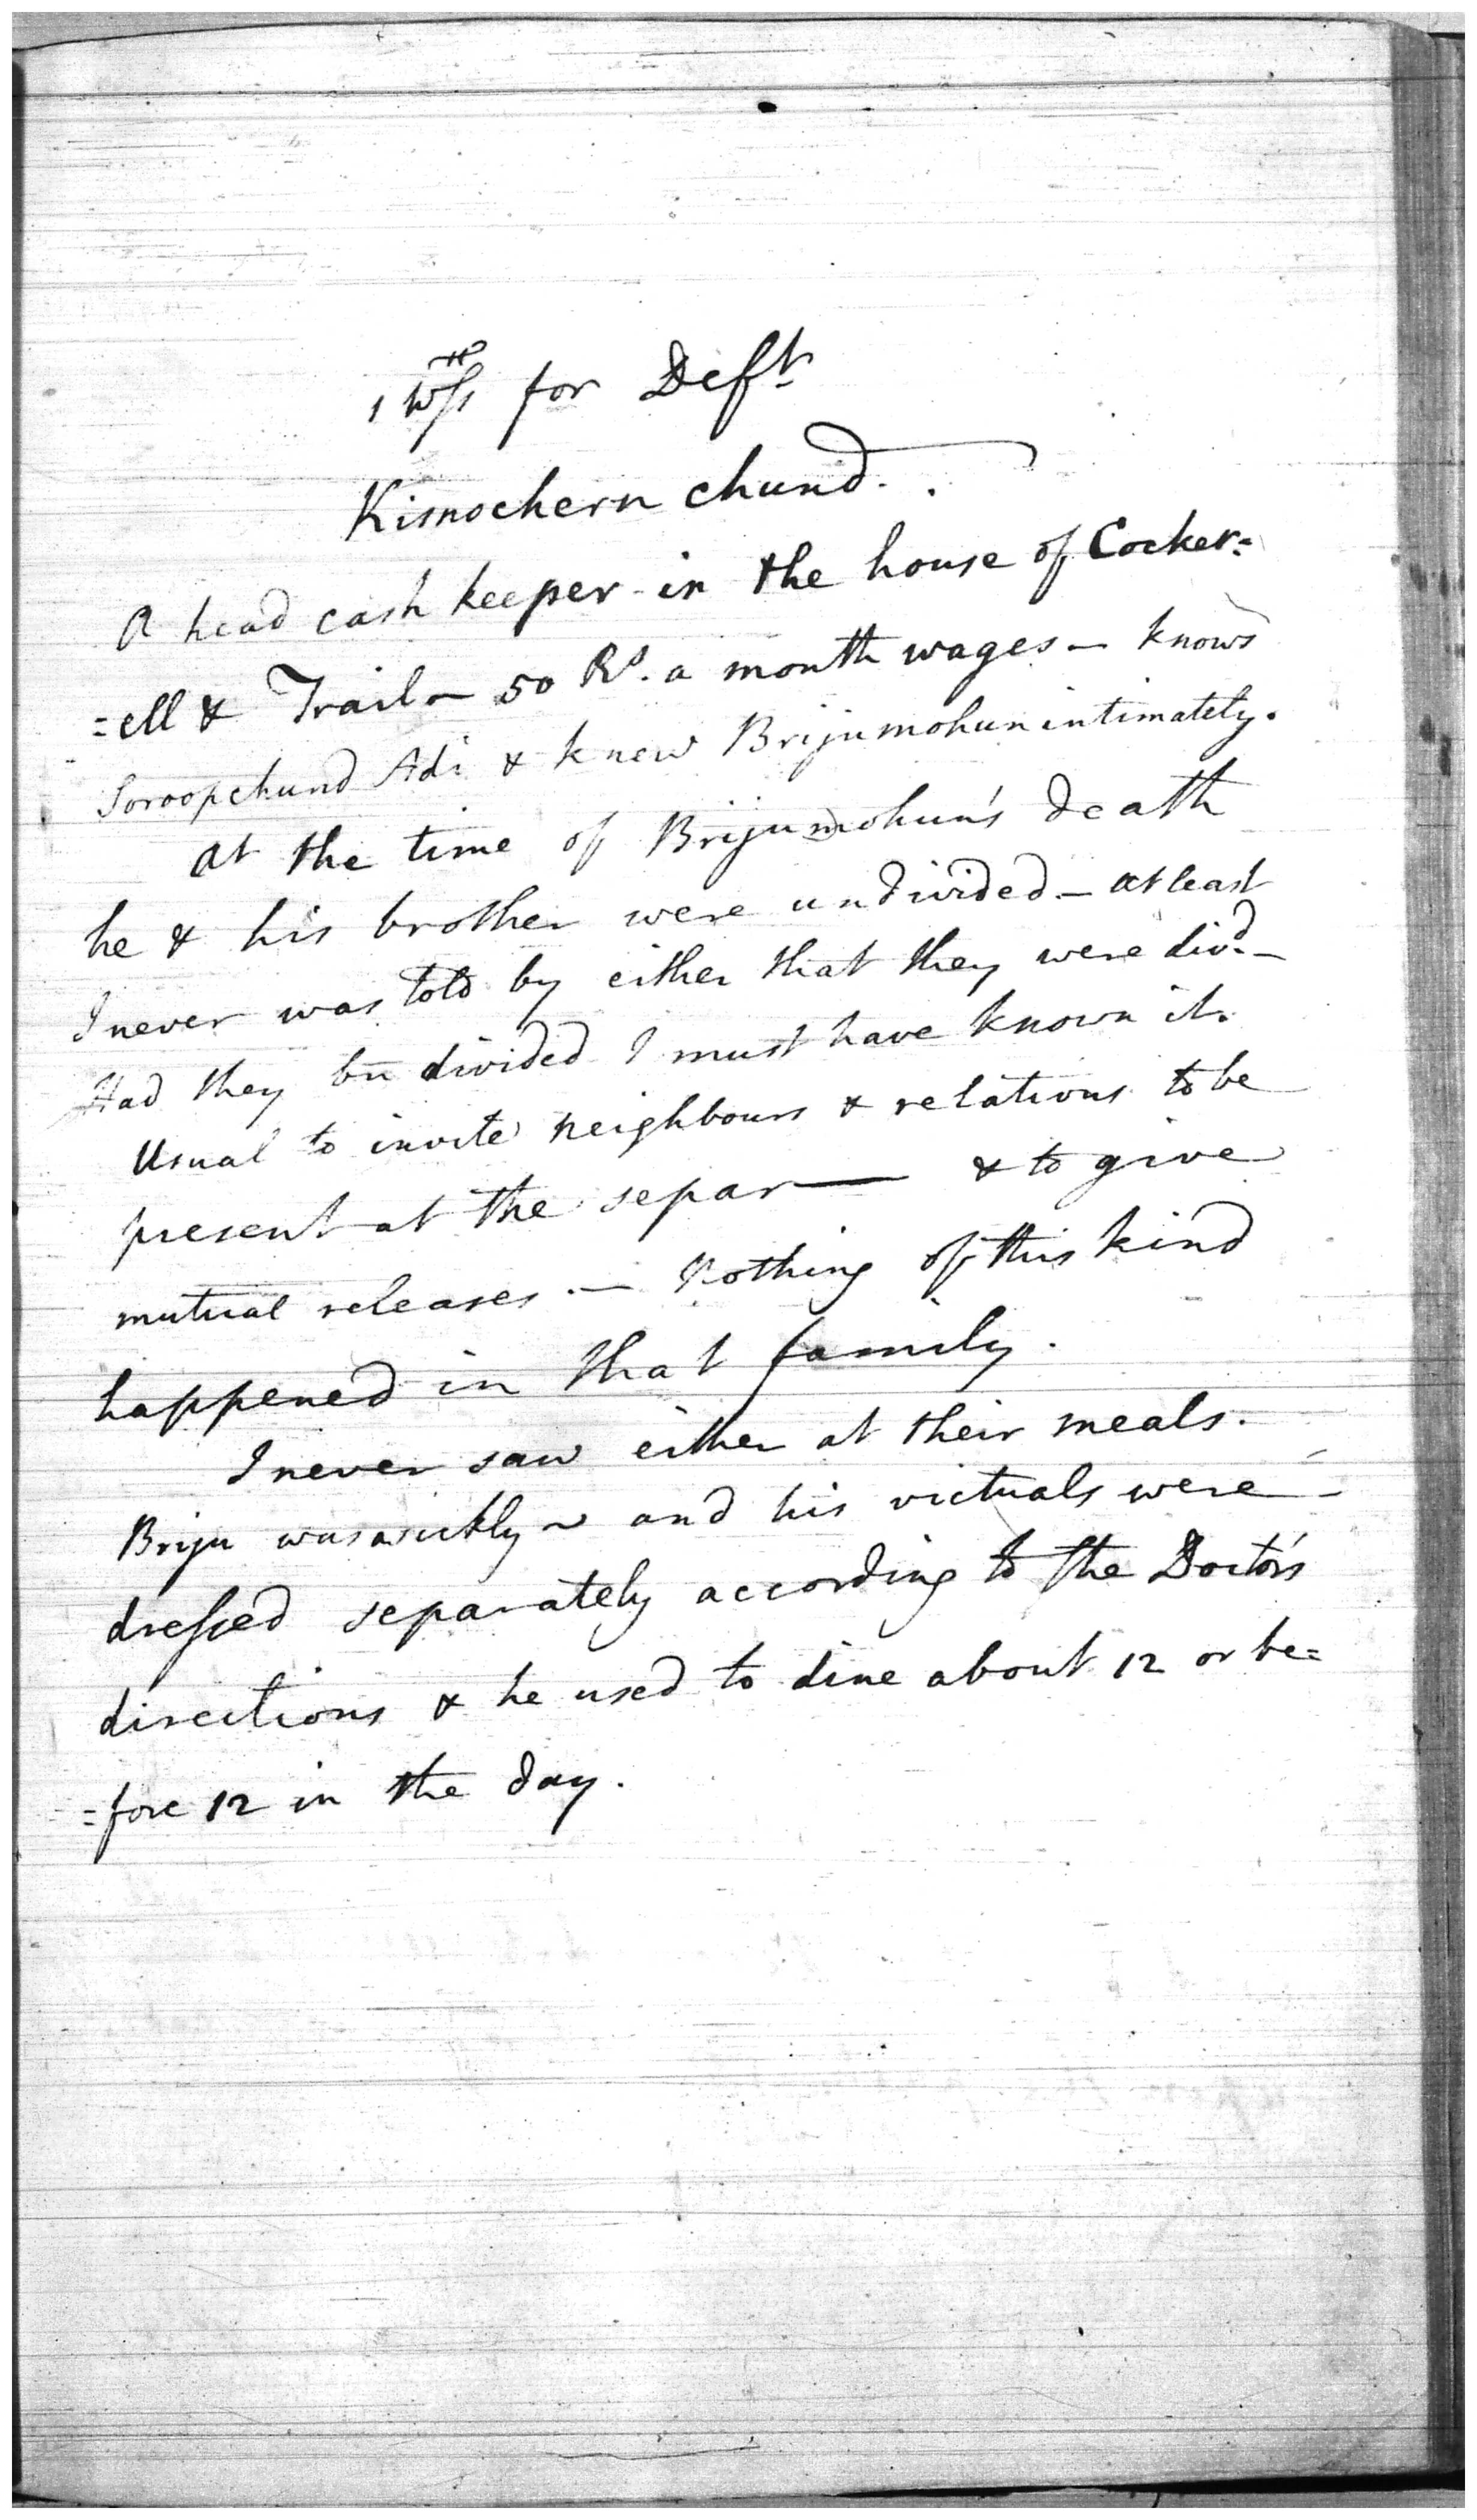 1 Wss for Deft
Kisnochern chund.
A head cash keeper in the house of Cocker=
=ell & Trail - 50 Rs. a month wages - knows
Soroopchund Adi & knew Brijumohun intimately.
At the time of Brijumohun's death
he & his brother were undivided - at least
I never was told by either that they were divd. -
Had they bn divided I must have known it.
Usual to invite neighbours & relations to be
present at the separ— & to give
mutual releases. - Nothing of this kind
happened in that family.
I never saw either at their meals.
Briju was sickly - and his victuals were
dressed separately according to the Doctor's
directions & he used to dine about 12 or be=
=fore 12 in the day.